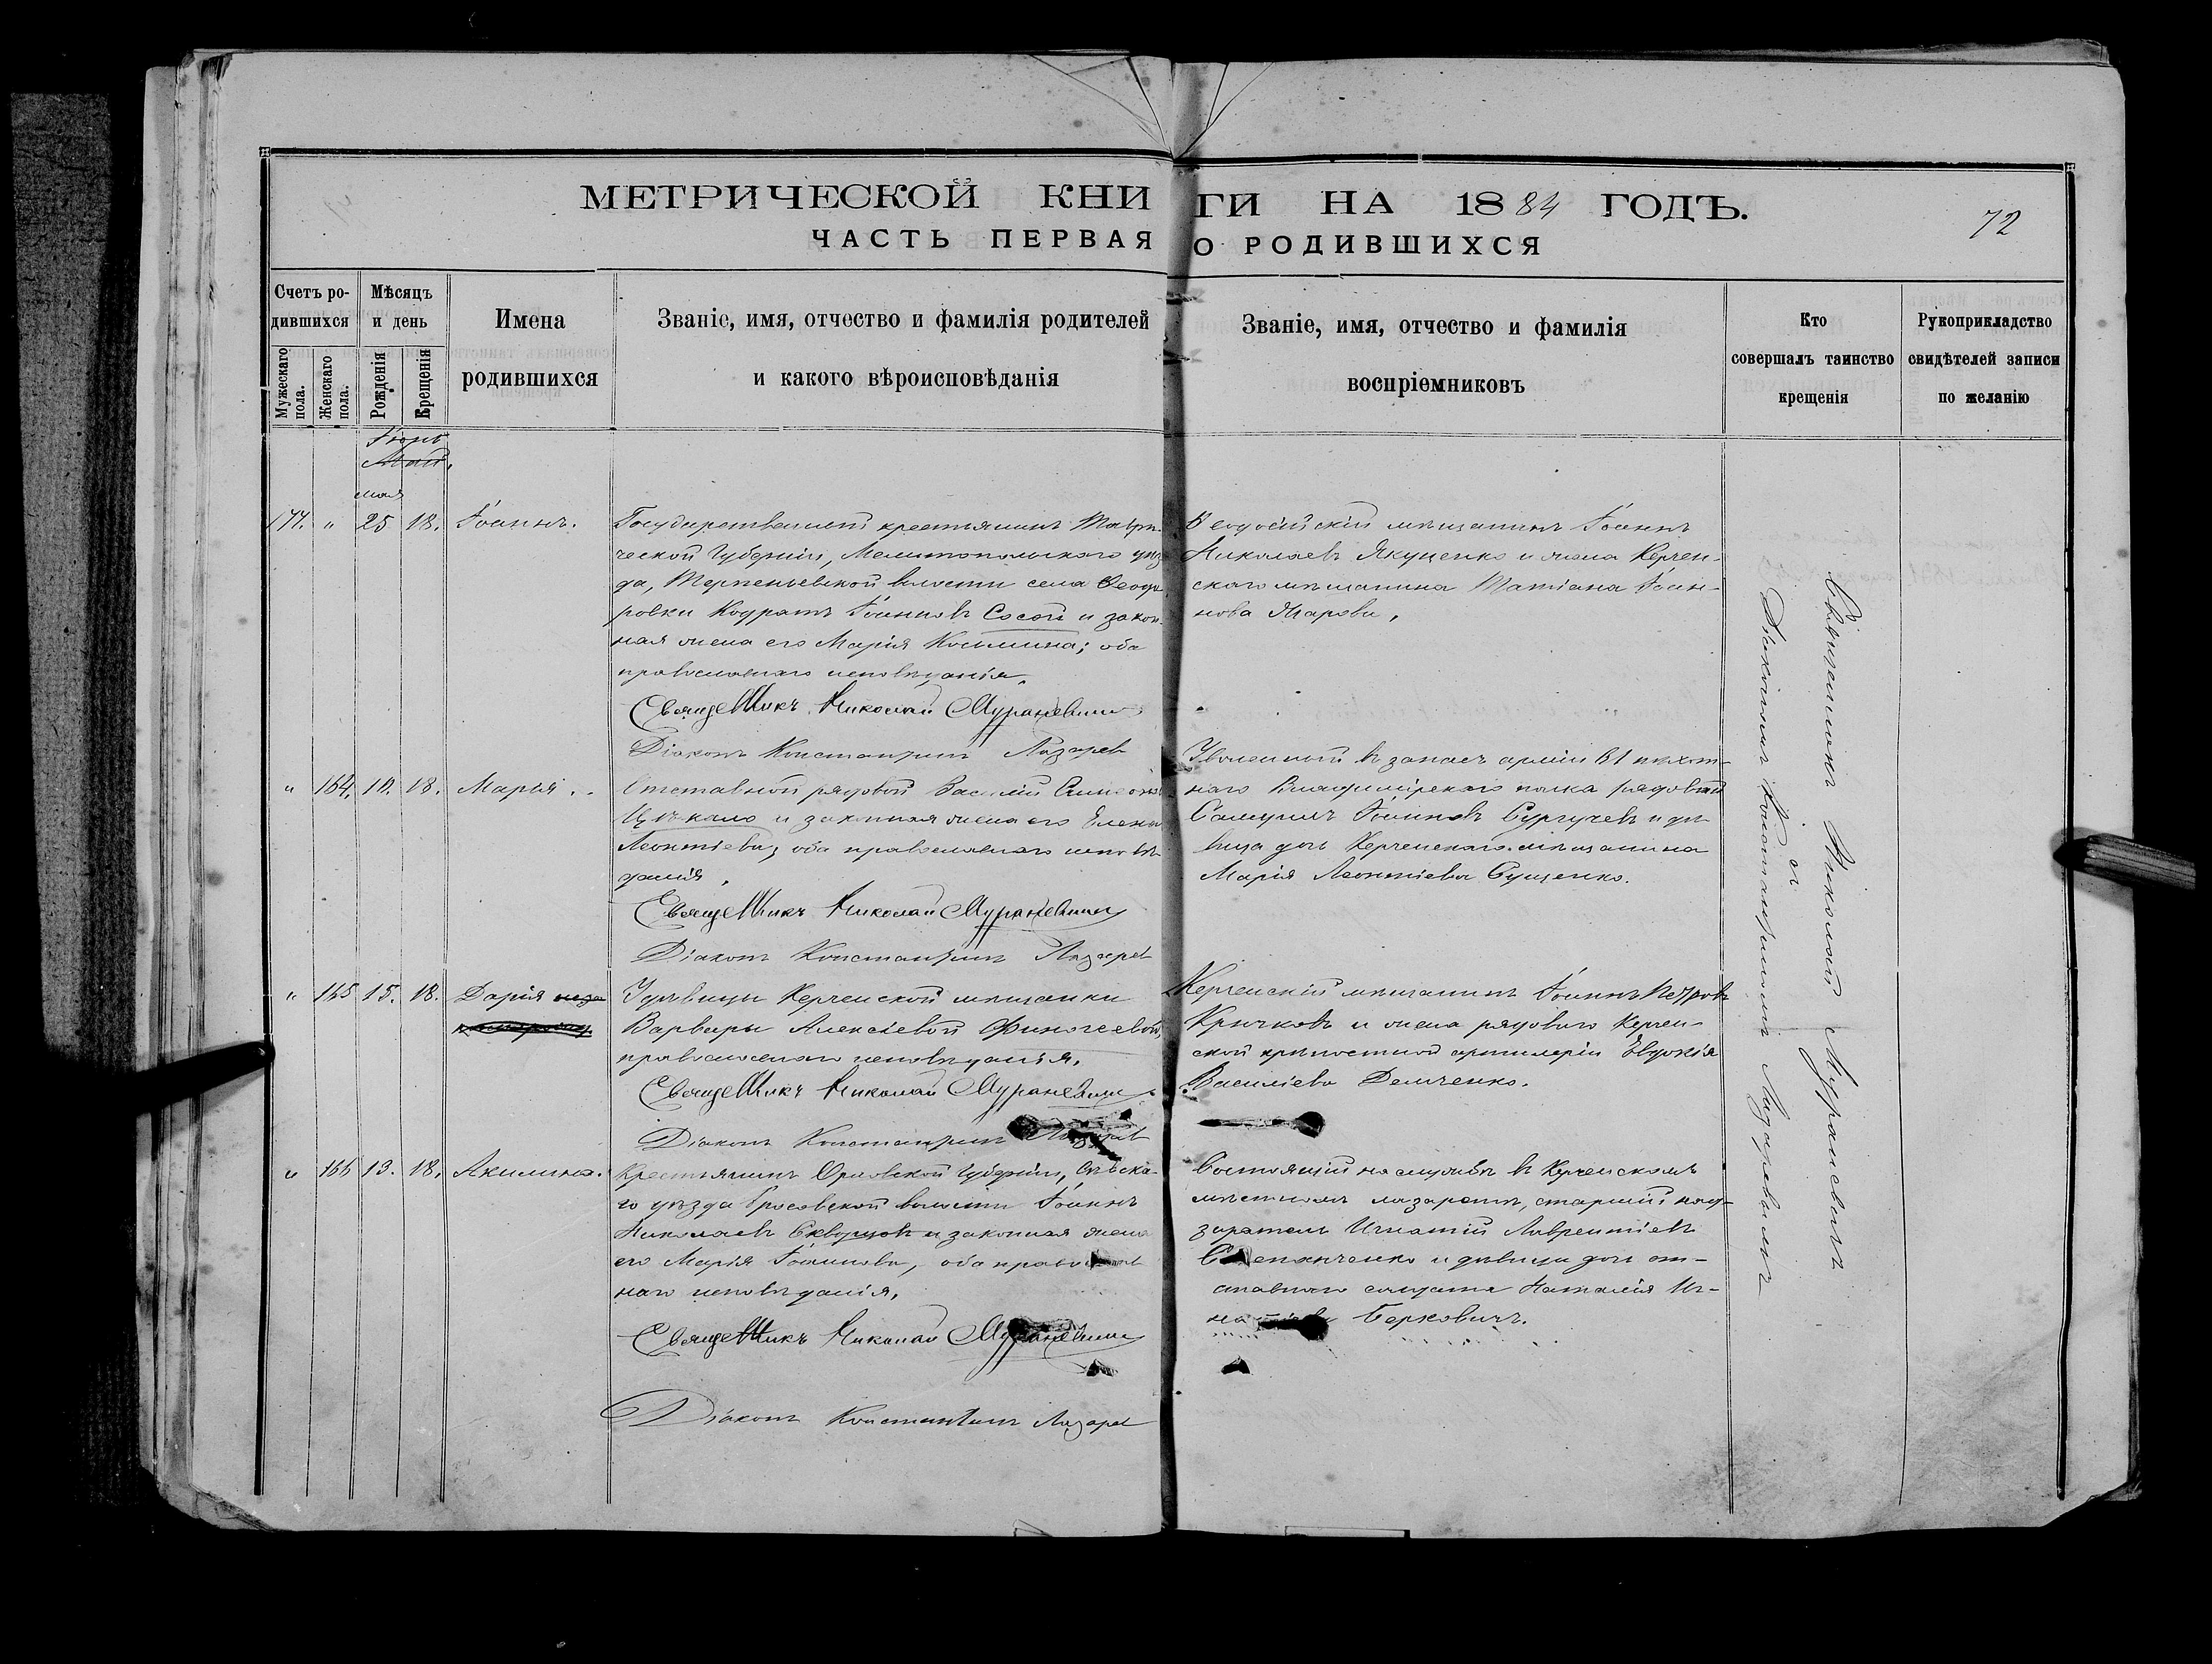 МЕТРИЧЕСКОЙ КНИГИ НА 1884 ГОДЪ.
72
ЧАСТЬ ПЕРВАЯ О РОДИВШИХСЯ
Счетъ родившихся
Мужескаго пола.
Женскаго пола.
Мѣсяцъ и день
Рожденія
Крещенія
Имена
родившихся
Званіе, имя, отчество и фамилія родителей
и какого вѣроисповѣданія
Званіе, имя, отчество и фамилія
воспріемниковъ
Кто
совершалъ таинство
крещенія
Рукоприкладство
свидѣтелей записи
по желанію
Іюнь
Май.
мая
177. " 25 18. Іоаннъ.
Государственный крестьянинъ Таври-
ческой Губерніи, Мелитопольскаго уѣз-
да, Терпеньевской волости села Ѳеодо-
ровки Кодратъ Іоанновъ Сосой и закон-
ная жена его Марія Космина; оба
православнаго исповѣданія.
Священникъ Николай Мураневичъ
Діаконъ Константинъ Лазарев
Ѳеодосійскій мѣщанинъ Іоаннъ
Николаевъ Якущенко и жена Керчен-
скаго мѣщанина Татіана Іоан-
нова
" 164. 10. 18. Марія.
Отставной рядовой Василій Симеоновъ
Цѣкало и законная жена его Елена
Леонтіева; оба православнаго исповѣ-
данія.
Священникъ Николай Мураневичъ
Діаконъ Константинъ Лазарев
Уволенный въ запасъ арміи 61 пѣхот-
наго Владимірскаго полка рядовой
Самуилъ Іоанновъ Сургучевъ и дѣ-
вица дочь Керченскаго мѣщанина
Марія Леонтіева Сущенко.
" 165 15. 18. Дарія
У дѣвицы Керченской мѣщанки
Варвары Алексіевой Финогеевой,
православнаго исповѣданія.
Священникъ Николай Мураневичъ
Діаконъ Константинъ Лазарев
Керченскій мѣщанинъ Іоаннъ Петровъ
Крючковъ и жена рядоваго Керчен-
ской крѣпостной артилеріи Евдокія
Василіева Демченко.
" 166 13. 18. Акилина.
Крестьянинъ Орловской Губерніи, Сѣвска-
го уѣзда волости Іоаннъ
Николаевъ Скворцовъ и законная жена
его Марія Іоаннова, оба православ-
наго исповѣданія.
Священникъ Николай Мураневичъ
Діаконъ Константинъ Лазарев
Состоящій на службѣ въ Керченскомъ
мѣстномъ лазаретѣ, старшій над-
зиратель Игнатій Лаврентіевъ
Степанченко и дѣвица дочь от-
ставнаго солдата Наталія Иг-
натіева Беркевичъ.
Священникъ Николай Мураневичъ
съ
Діакономъ Константиномъ Лазаревымъ